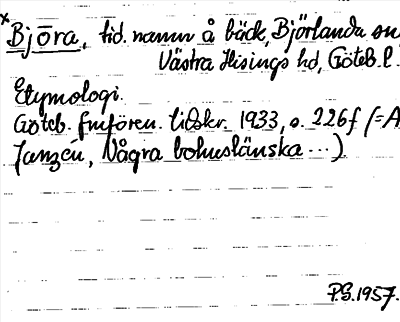 *Bjōra, tid. namn å bäck, Björlanda sn
Västra Hisings hd, Göteb. l.
Etymologi.
Göteb. fmfören. tidskr. 1933, s. 226f (=A
Janzén, Några bohuslänska ...)
P.S. 1957.